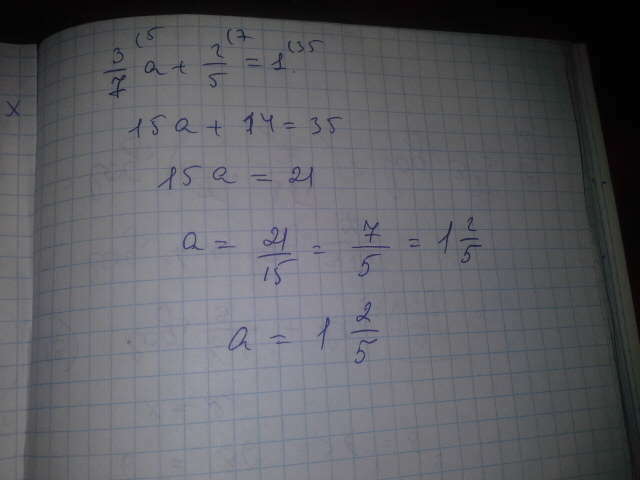 3/7 (5 a + 2/5 (7 = 1 (35
15a + 14 = 35
15a = 21
a = 21/15 = 7/5 = 1 2/5
a = 1 2/5
x